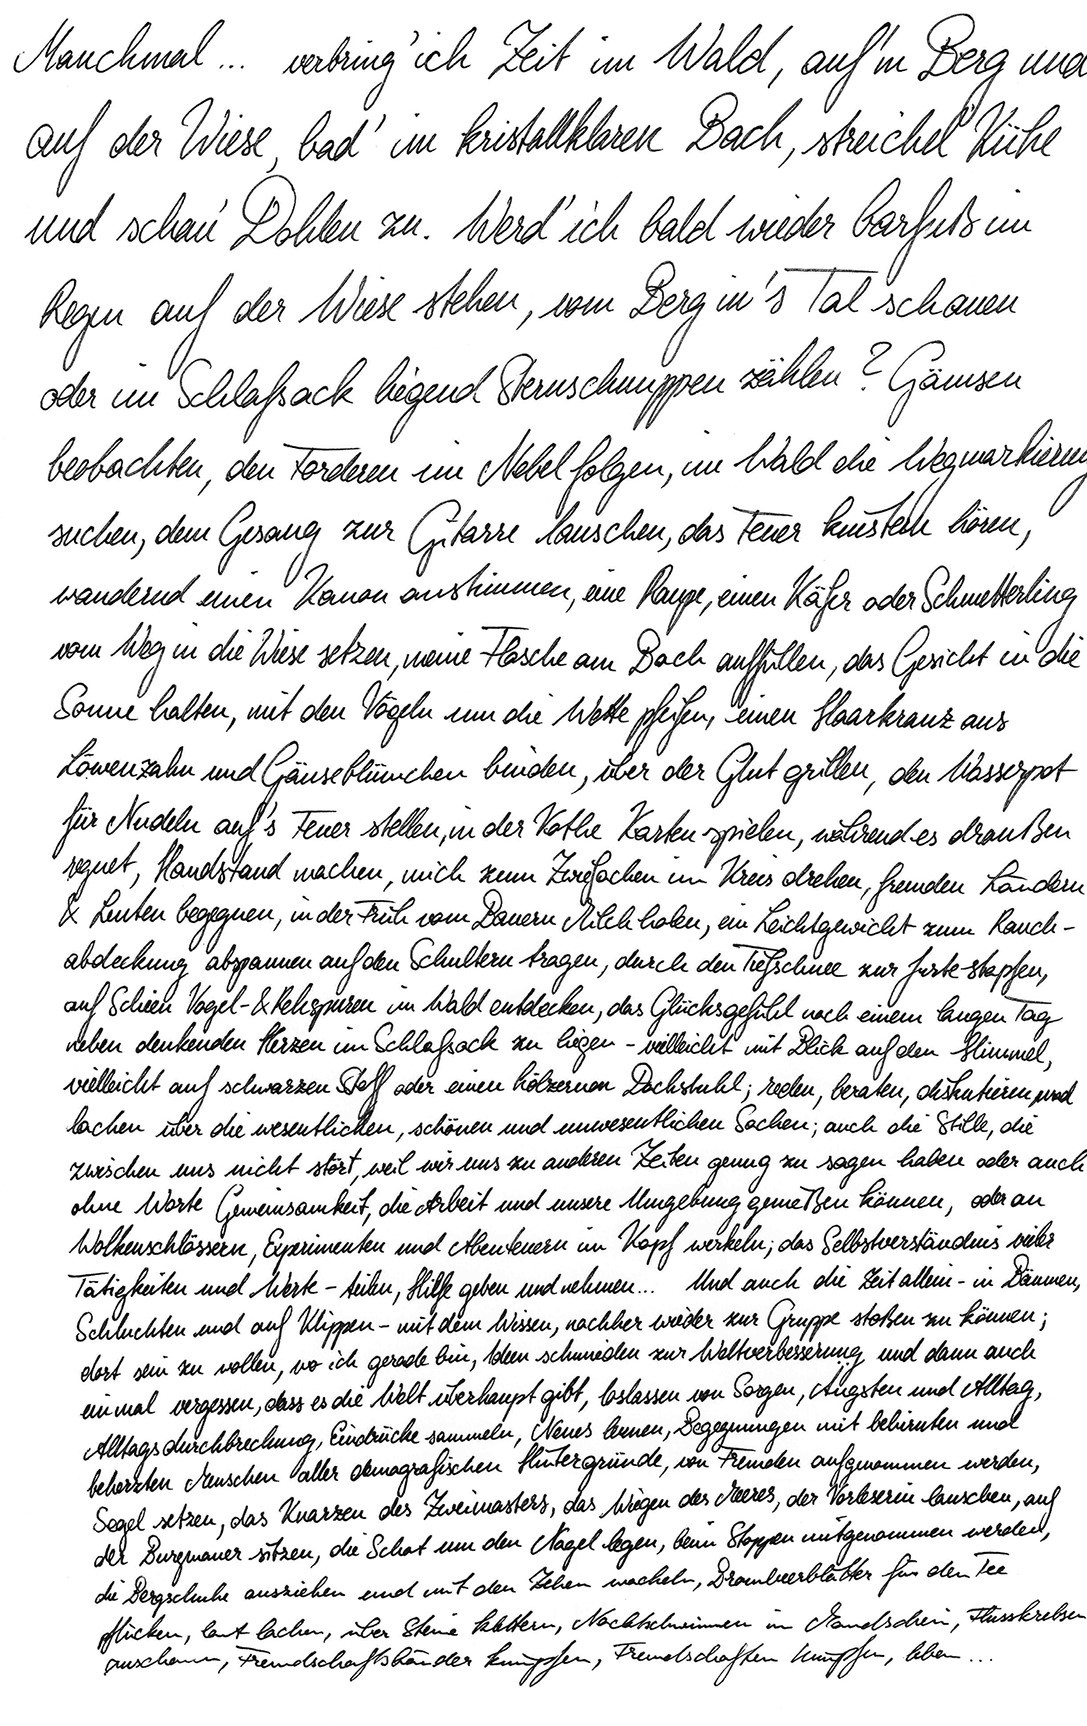 Manchmal ... verbring' ich Zeit im Wald, auf'm Berg und
auf der Wiese, bad' im kristallklaren Bach, streichel' Kühe
und schau' Dohlen zu. Werd' ich bald wieder barfuß im
Regen auf der Wiese stehen, vom Berg in's Tal schauen
oder im Schlafsack liegend Sternschnuppen zählen? Gämsen
beobachten, den Forderen im Nebel folgen, im Wald die Wegmarkierung
suchen, dem Gesang zur Gitarre lauschen, das Feuer knistern hören,
wandernd einen Kanon anstimmen, eine Raupe, einen Käfer oder Schmetterling
vom Weg in die Wiese setzen, meine Flasche am Bach auffüllen, das Gesicht in die
Sonne halten, mit den Vögeln um die Wette pfeifen, einen Haarkranz aus
Löwenzahn und Gänseblümchen binden, über der Glut grillen, den Wasserpot
für Nudeln auf's Feuer stellen, in der Kothe Karten spielen, während es draußen
regnet, Handstand machen, mich zum Zwiefachen im Kreis drehen, fremden Ländern
& Leuten begegnen, in der Früh vom Bauern Milch holen, ein Leichtgewicht zum Rauch-
abdeckung abspannen auf den Schultern tragen, durch den Tiefschnee zur Jurte stapfen,
auf Schien Vogel- & Rehspuren im Wald entdecken, das Glücksgefühl nach einem langen Tag
neben denkenden Herzen im Schlafsack zu liegen - vielleicht mit Blick auf den Himmel,
vielleicht auf schwarzen Stoff oder einen hölzernen Dachstuhl; reden, beraten, diskutieren und
lachen über die wesentlichen, schönen und unwesentlichen Sachen; auch die Stille, die
zwischen uns nicht stört, weil wir uns zu anderen Zeiten genug zu sagen haben oder auch
ohne Worte Gemeinsamkeit, die Arbeit und unsere Umgebung genießen können, oder an
Wolkenschlössern, Experimenten und Abenteuern im Kopf werkeln; das Selbstverständnis vieler
Tätigkeiten und Werte - teilen, Hilfe geben und nehmen... Und auch die Zeit allein - in Bäumen,
Schluchten und auf Klippen - mit dem Wissen, nachher wieder zur Gruppe stoßen zu können;
dort sein zu wollen, wo ich gerade bin, Ideen schmieden zur Weltverbesserung und dann auch
einmal vergessen, dass es die Welt überhaupt gibt, loslassen von Sorgen, Ängsten und Alltag,
Alltagsdurchbrechung, Eindrücke sammeln, Neues lernen, Begegnungen mit behirnten und
beherzten Menschen aller demografischen Hintergründe, von Fremden aufgenommen werden,
Segel setzen, das Knarzen des Zweimasters, das Wiegen des Meeres, der Vorleserin lauschen, auf
der Burgmauer sitzen, die Schot um den Nagel legen, beim Stoppen mitgenommen werden,
die Bergschuhe ausziehen und mit den Zehen wackeln, Brombeerblätter für den Tee
pflücken, laut lachen, über Steine klettern, Nachtschwimmen im Mondschein, Flusskrebsen
zuschauen, Freundschaftsbänder knüpfen, Freundschaften knüpfen, leben ...